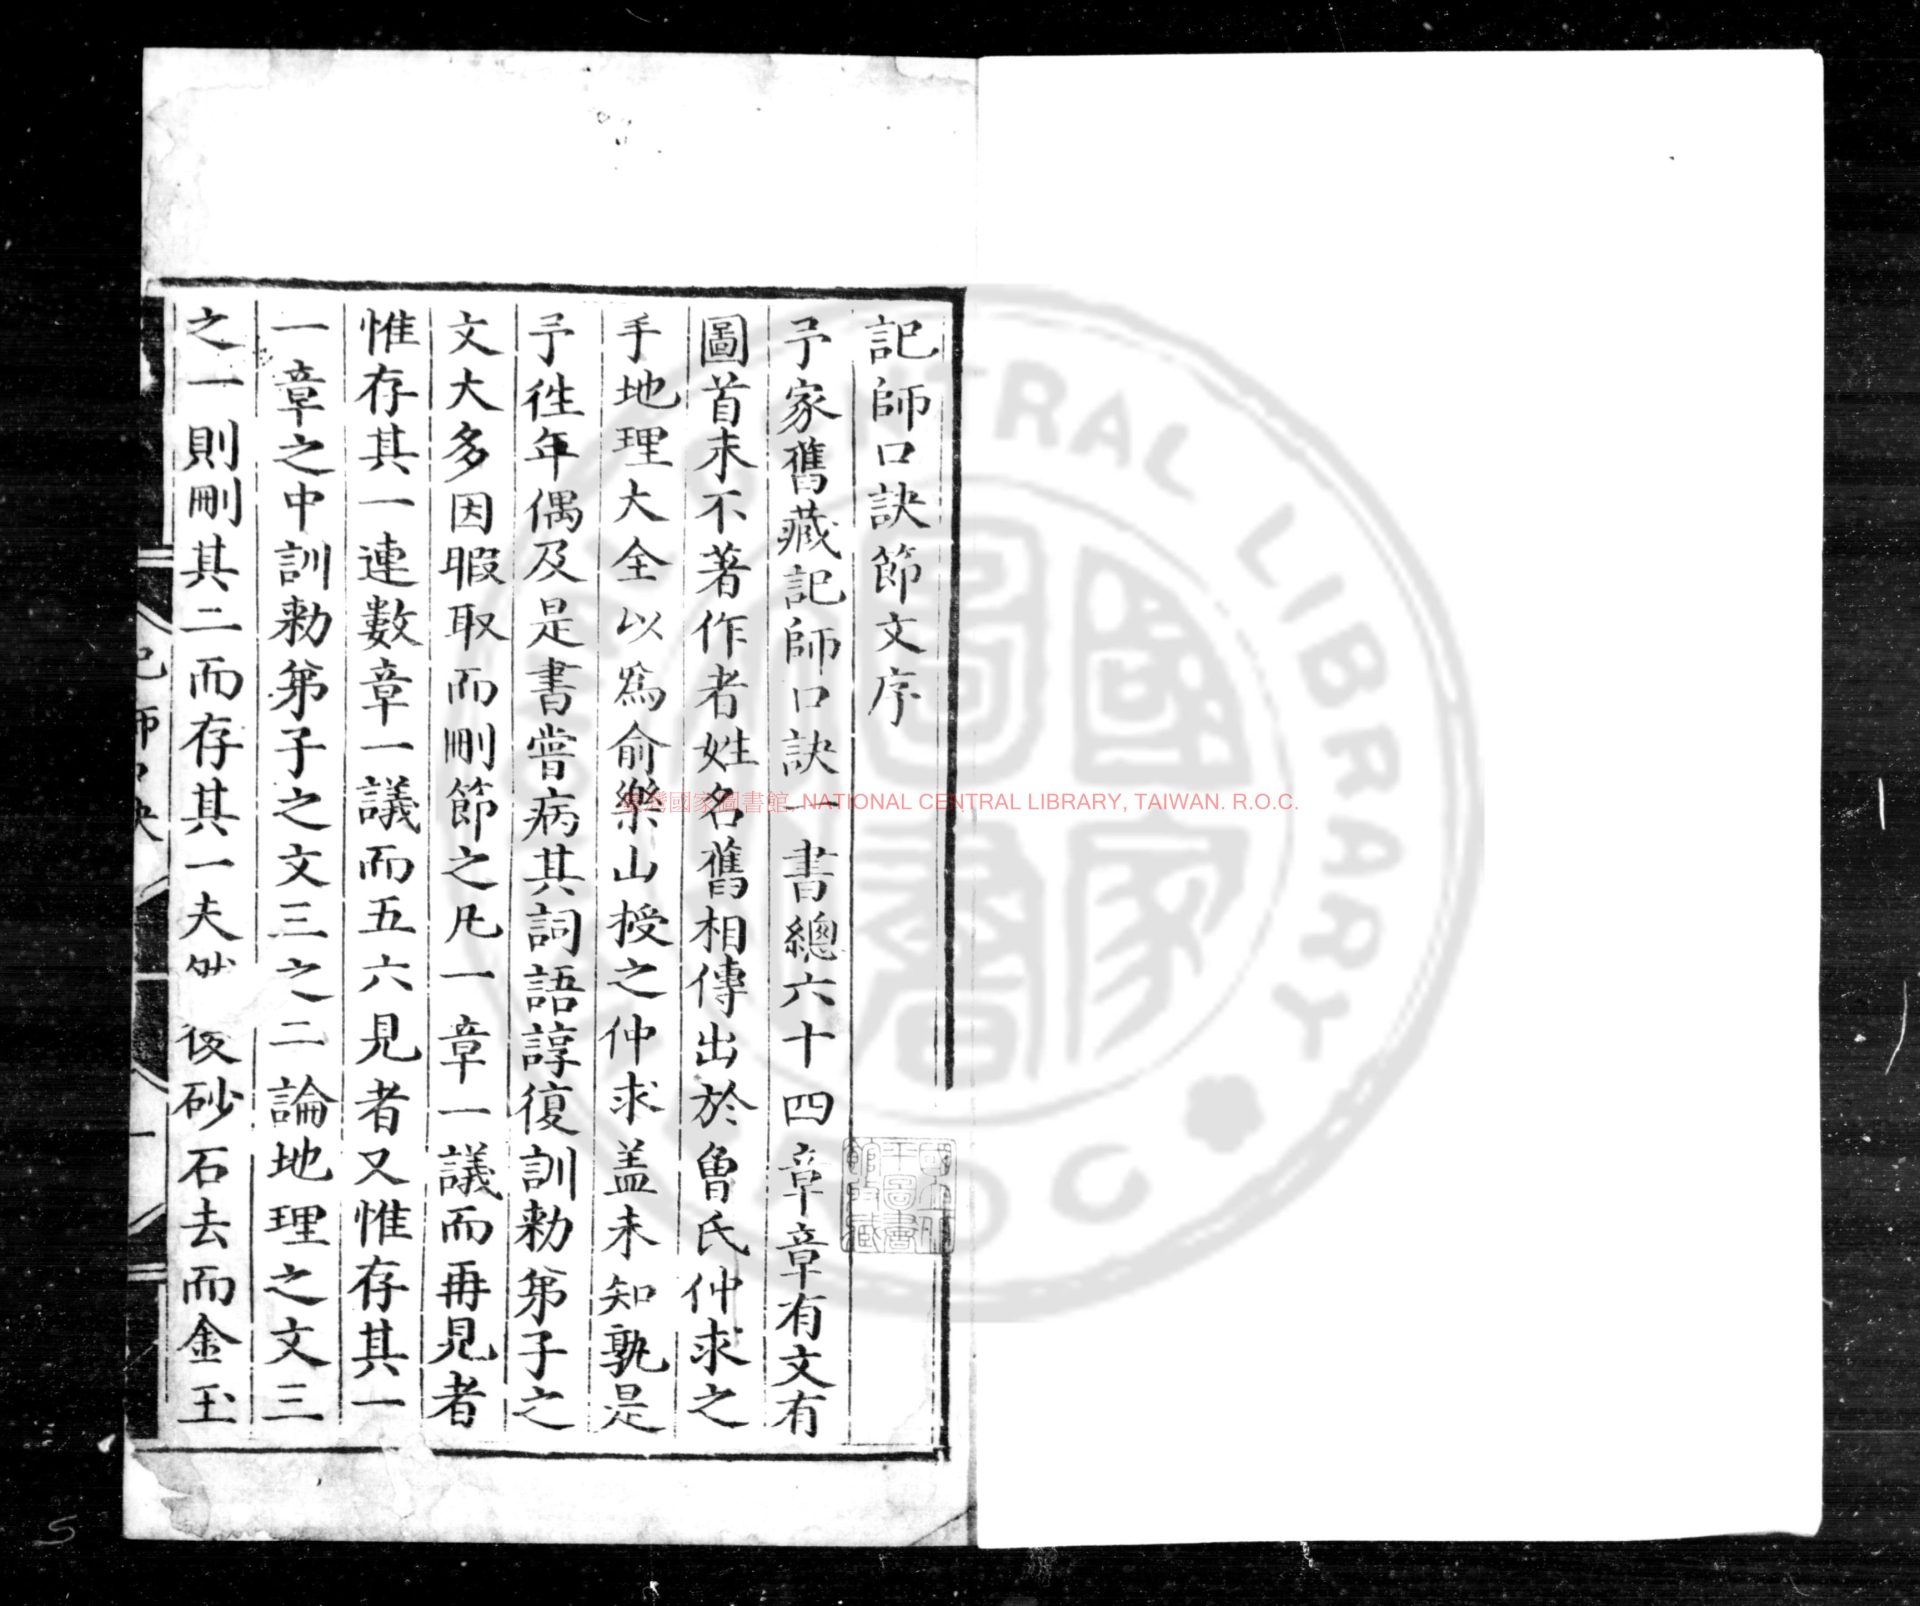 記師口訣節文序
予家舊藏記師口訣一書總六十四章章有文有
圖首末不著作者姓名舊相傳出於魯氏仲求之
手地理大全以爲俞樂山授之仲求盖未知孰是
予徃年偶及是書嘗病其詞語諄復訓勅第子之
文大多因暇取而刪節之凡一章一議而再見者
惟存其一連數章一議而五六見者又惟存其一
一章之中訓勅第子之文三之二論地理之文三
之一則刪其二而存其一夫然後砂石去而金玉
記師口訣
一
國立中央圖書館收藏
臺灣國家圖書館 NATIONAL CENTRAL LIBRARY, TAIWAN. R.O.C.